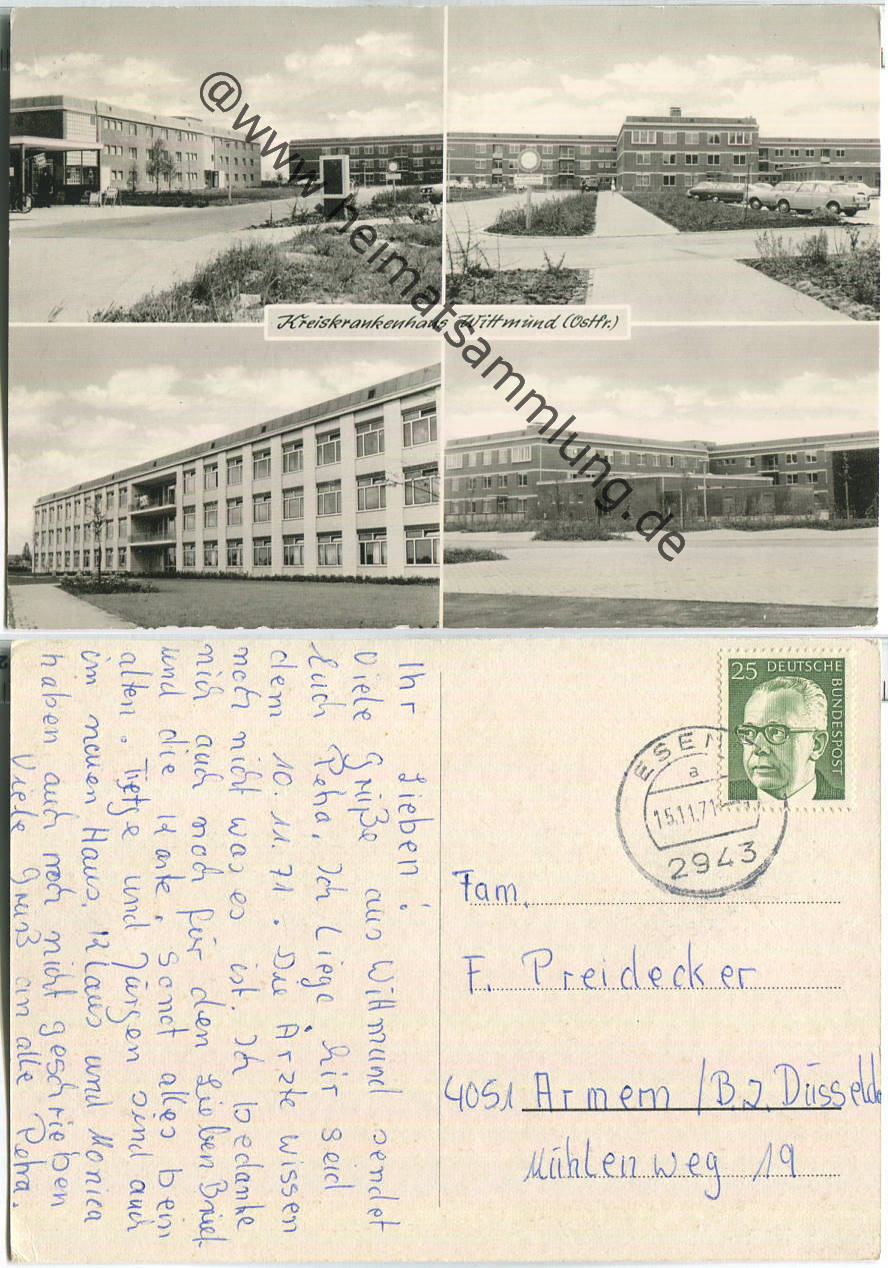 @www.heimatsammlung.de
Kreiskrankenhaus Wittmund (Ostfr.)
Ihr Lieben!
Viele Grüße aus Wittmund sendet
Euch Petra. Ich Liege hir seid
dem 10.11.71. Die Ärzte wissen
noch nicht was es ist. Ich bedanke
mich auch noch für den Lieben Brief
und die Karte, sonst alles bein
alten. Tjetje und Jürgen sind auch
im neuen Haus, Klaus und Monica
haben auch noch nicht geschrieben
Viele Grüß an alle Petra.
25 DEUTSCHE
BUNDESPOST
ESEN
a
15.11.71
2943
Fam.
F. Preidecker
4051 Armem /B.J. Düsseldo
Mühlenweg 19